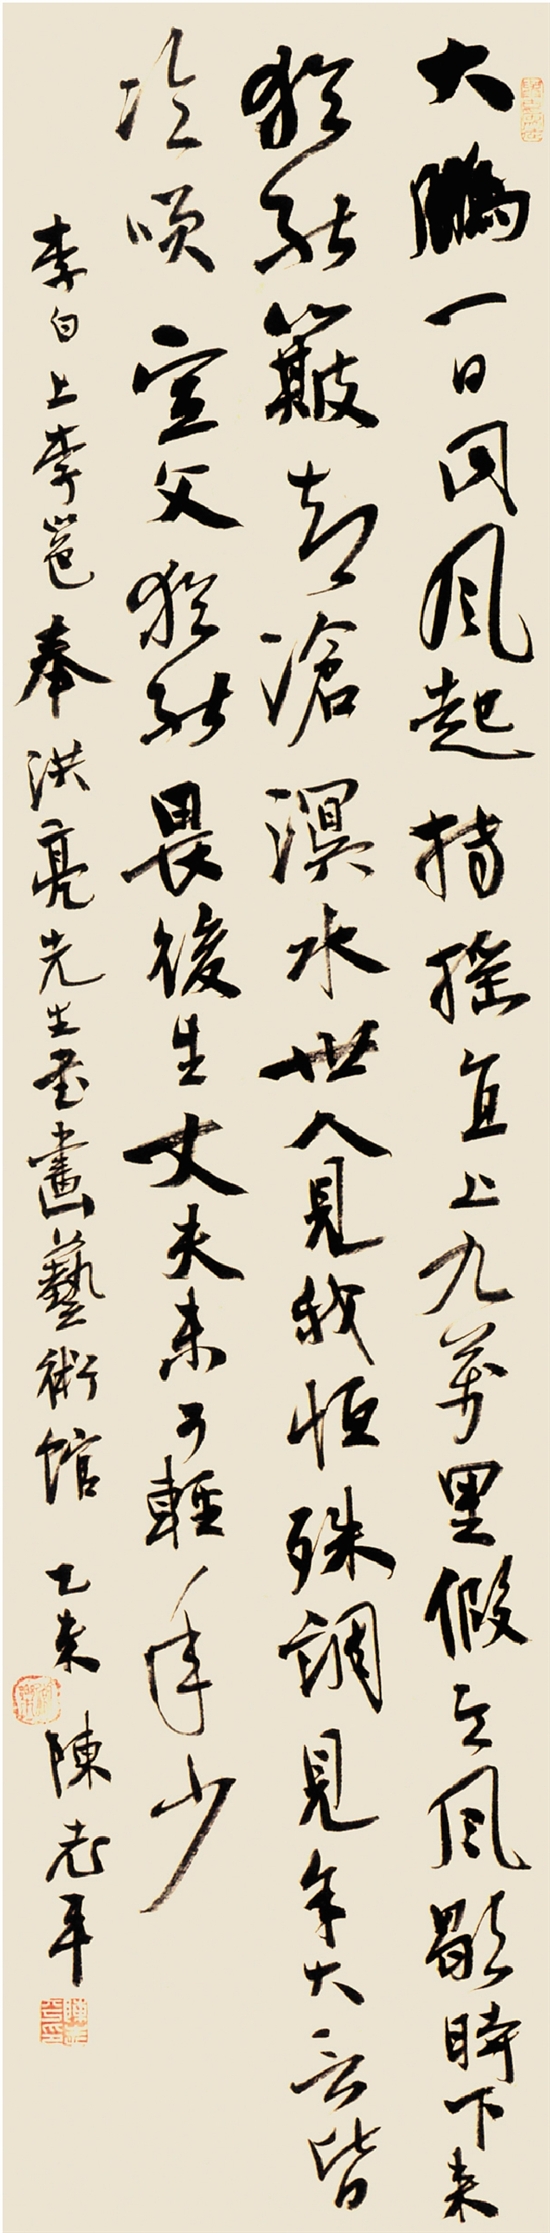 大鵬一日同風起摶搖直上九萬里假令風歇時下來
猶能簸却滄溟水世人見我恒殊調見余大言皆
冷咲宣父猶能畏後生丈夫未可輕年少
李白上李邕奉洪亮先生書畫藝術館乙未陳志平